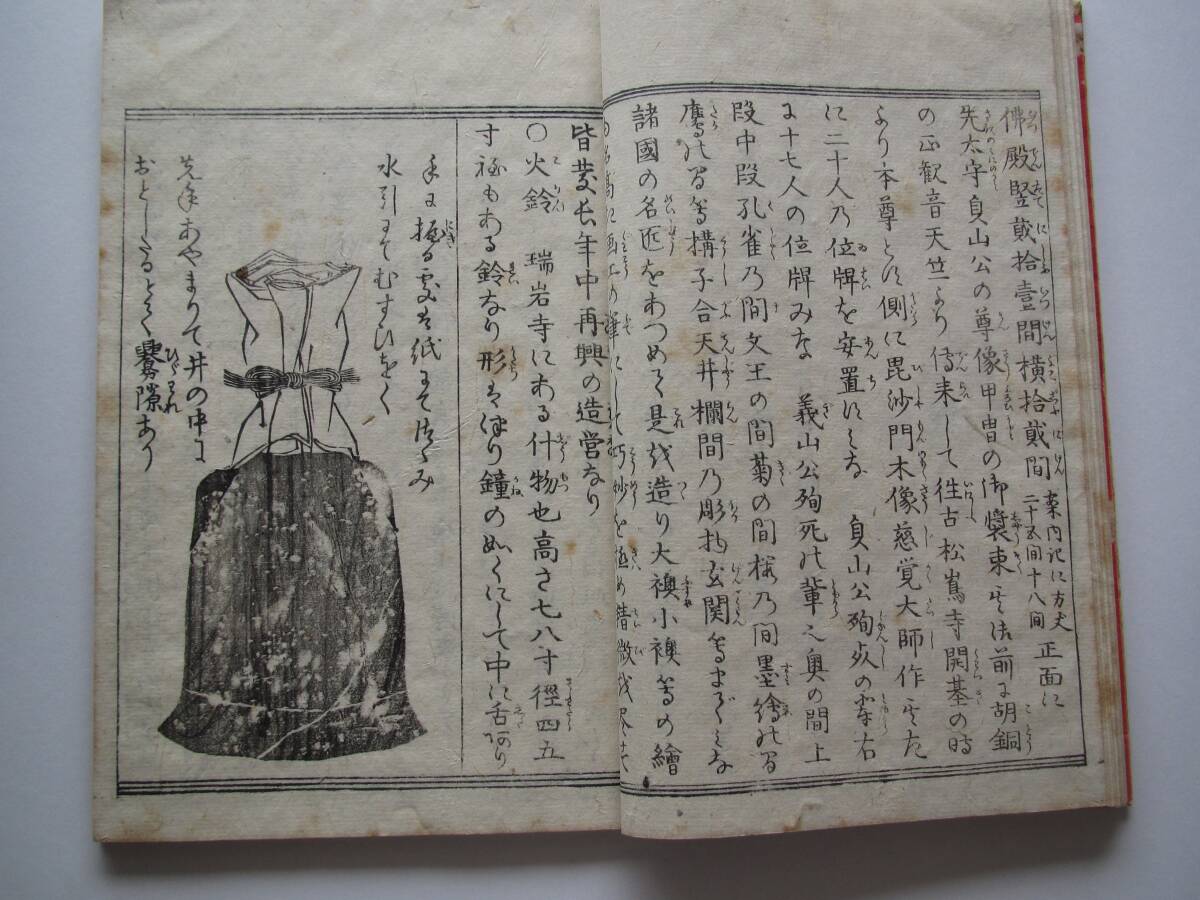 佛殿竪貳拾壹間横拾貳間 案内記に方丈二十五間十八間 正面に
先太守貞山公の尊像甲冑の御裝束 法前に胡銅
の正観音天竺より傳来して徃古松嶌寺開基の時
より本尊とす側に毘沙門木像慈覚大師作また
に二十人乃位牌を安置す 貞山公殉死の 右
に十七人の位牌みな 義山公殉死の輩 奥の間上
段中段孔雀乃間文王の間菊の間桜乃間墨繪の間
鷹の間等構子合天井欄間乃彫物玄関等まで みな
諸國の名匠をあつめて是を造り大襖小襖等の繪
にして巧妙を極め
皆慶長年中再興の造営なり
○火鈴 瑞岩寺にある什物也高さ七八寸徑四五
寸 もある鈴なり形は 鐘の如くにして中に舌あり
手に握る処は紙にて つゝみ
水引にてむすひをく
先年あやまりて井の中に
おとしたるとて 隙あり